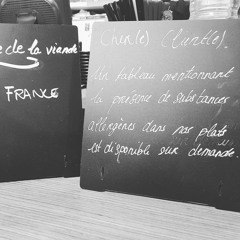 e de la viande
FRANCE
Cher(e) Client(e).
Un tableau mentionnant
la présence de substances
allergènes dans nos plats
est disponible sur demande.